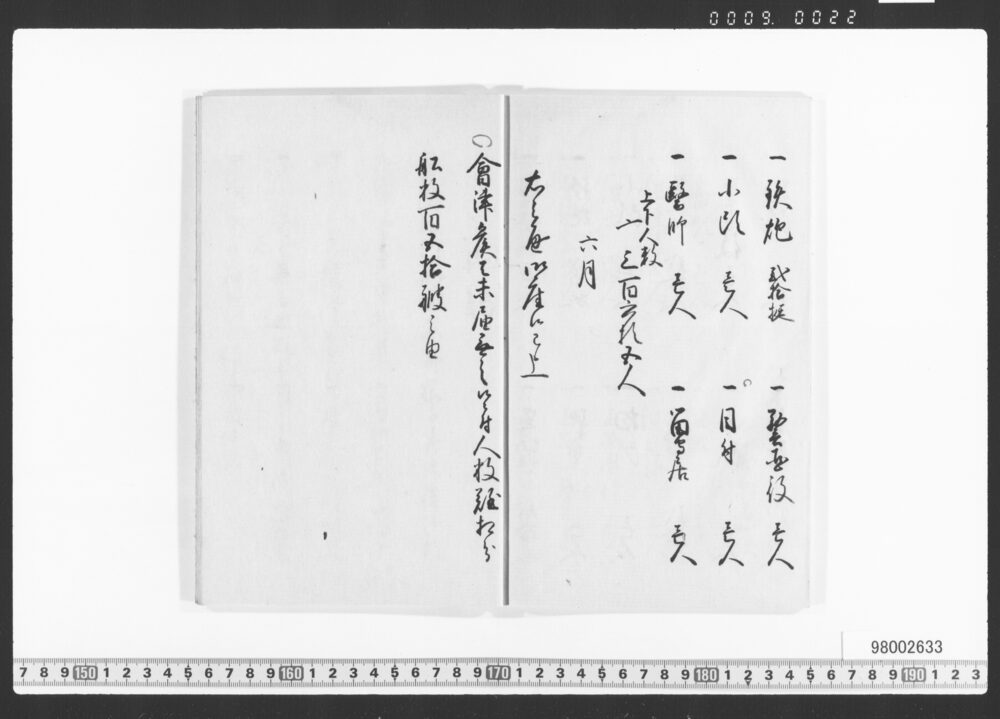 0009. 0022
一鉄炮 弐拾挺 一勢平役 壱人
一小頭 壱人 一目付 壱人
一醫師 壱人 一留守居 壱人
上下人数
〆三百六拾五人
六月
右之通御座候已上
○會津産て未届無之候付人数難相分
船数百五拾艘之由
98002633
7 8 9 150 1 2 3 4 5 6 7 8 9 160 1 2 3 4 5 6 7 8 9 170 1 2 3 4 5 6 7 8 9 180 1 2 3 4 5 6 7 8 9 190 1 2 3